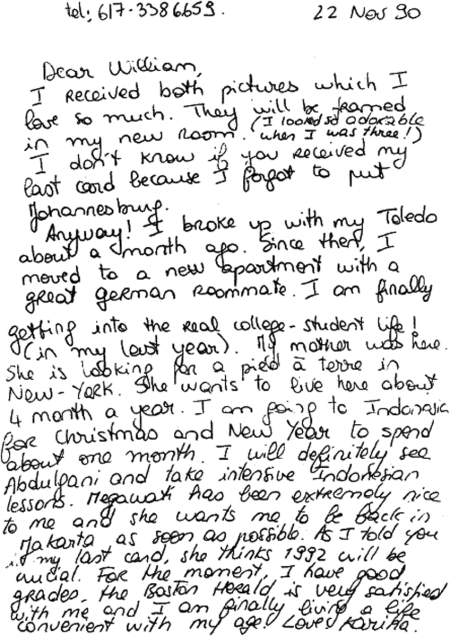 tel: 617-3386659. 22 Nov 90
Dear William,
I received both pictures which I
love so much. They will be framed
in my new room. (I looked so adorable
when I was three!)
I don't know if you received my
last card because I forgot to put
Johannesburg.
Anyway! I broke up with my Toledo
about a month ago. Since then, I
moved to a new apartment with a
great german roommate. I am finally
getting into the real college-student life!
(in my last year). My mother was here.
She is looking for a pied à terre in
New-York. She wants to live here about
4 month a year. I am going to Indonesia
for Christmas and New Year to spend
about one month. I will definitely see
Abdulgani and take intensive Indonesian
lessons. Megawati has been extremely nice
to me and she wants me to be back in
Jakarta as soon as possible. As I told you
in my last card, she thinks 1992 will be
crucial. For the moment, I have good
grades, the Boston Herald is very satisfied
with me and I am finally living a life
convenient with my age! Love, Karika.